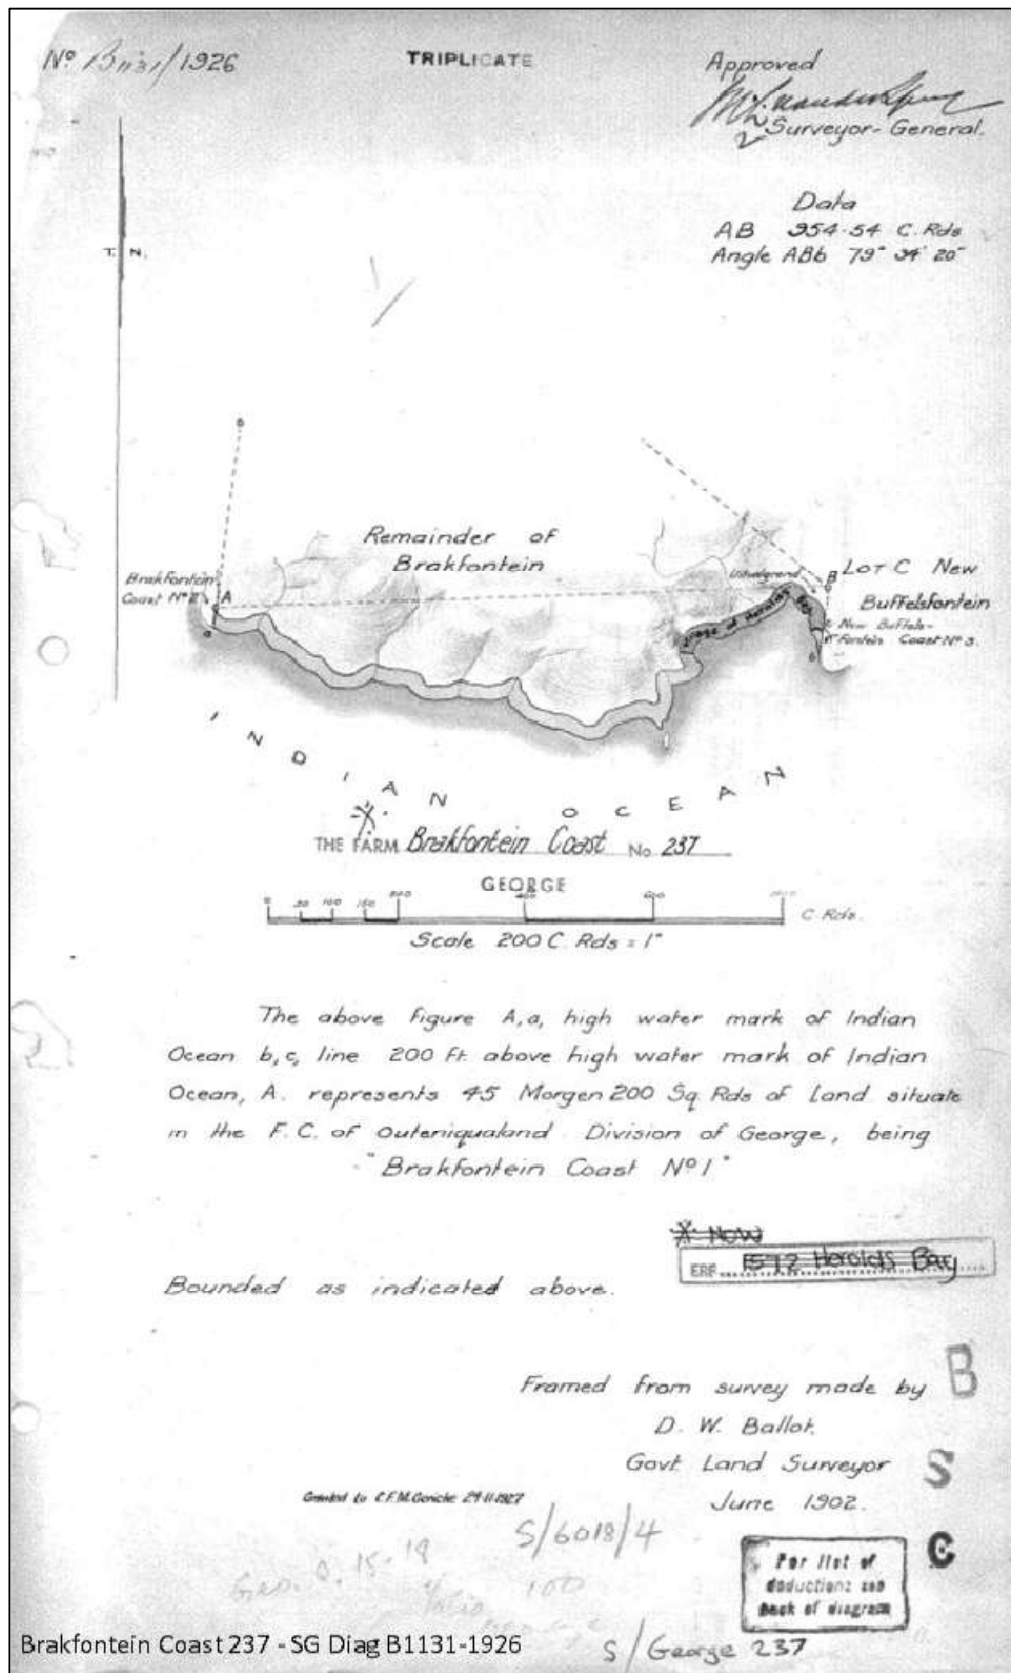 No B1131/1926
TRIPLICATE
Approved
Surveyor-General.
Data
AB 954·54 C. Rds
Angle ABb 79° 34' 20"
T. N.
Remainder of
Brakfontein
Brakfontein
Coast No 2
A
a
B
LOT C New
Buffelsfontein
New Buffels-
fontein Coast No 3.
Uitvalgrond
Village of Herolds Bay
INDIAN OCEAN
THE FARM Brakfontein Coast No 237
GEORGE
0 50 100 150 200 400 600 800
C. Rds.
Scale 200 C. Rds = 1"
The above figure A,a, high water mark of Indian
Ocean b,c, line 200 ft. above high water mark of Indian
Ocean, A. represents 45 Morgen 200 Sq. Rds of land situate
in the F.C. of Outeniqualand Division of George, being
"Brakfontein Coast No 1"
* NOW
ERF 1572 Herolds Bay
Bounded as indicated above.
Framed from survey made by
D. W. Ballot.
Govt Land Surveyor
June 1902.
B
S
C
Granted to 29·11·1927
S/6018/4
Geo. Q. 15·19
100
For list of
deductions see
back of diagram
Brakfontein Coast 237 - SG Diag B1131-1926
S/George 237